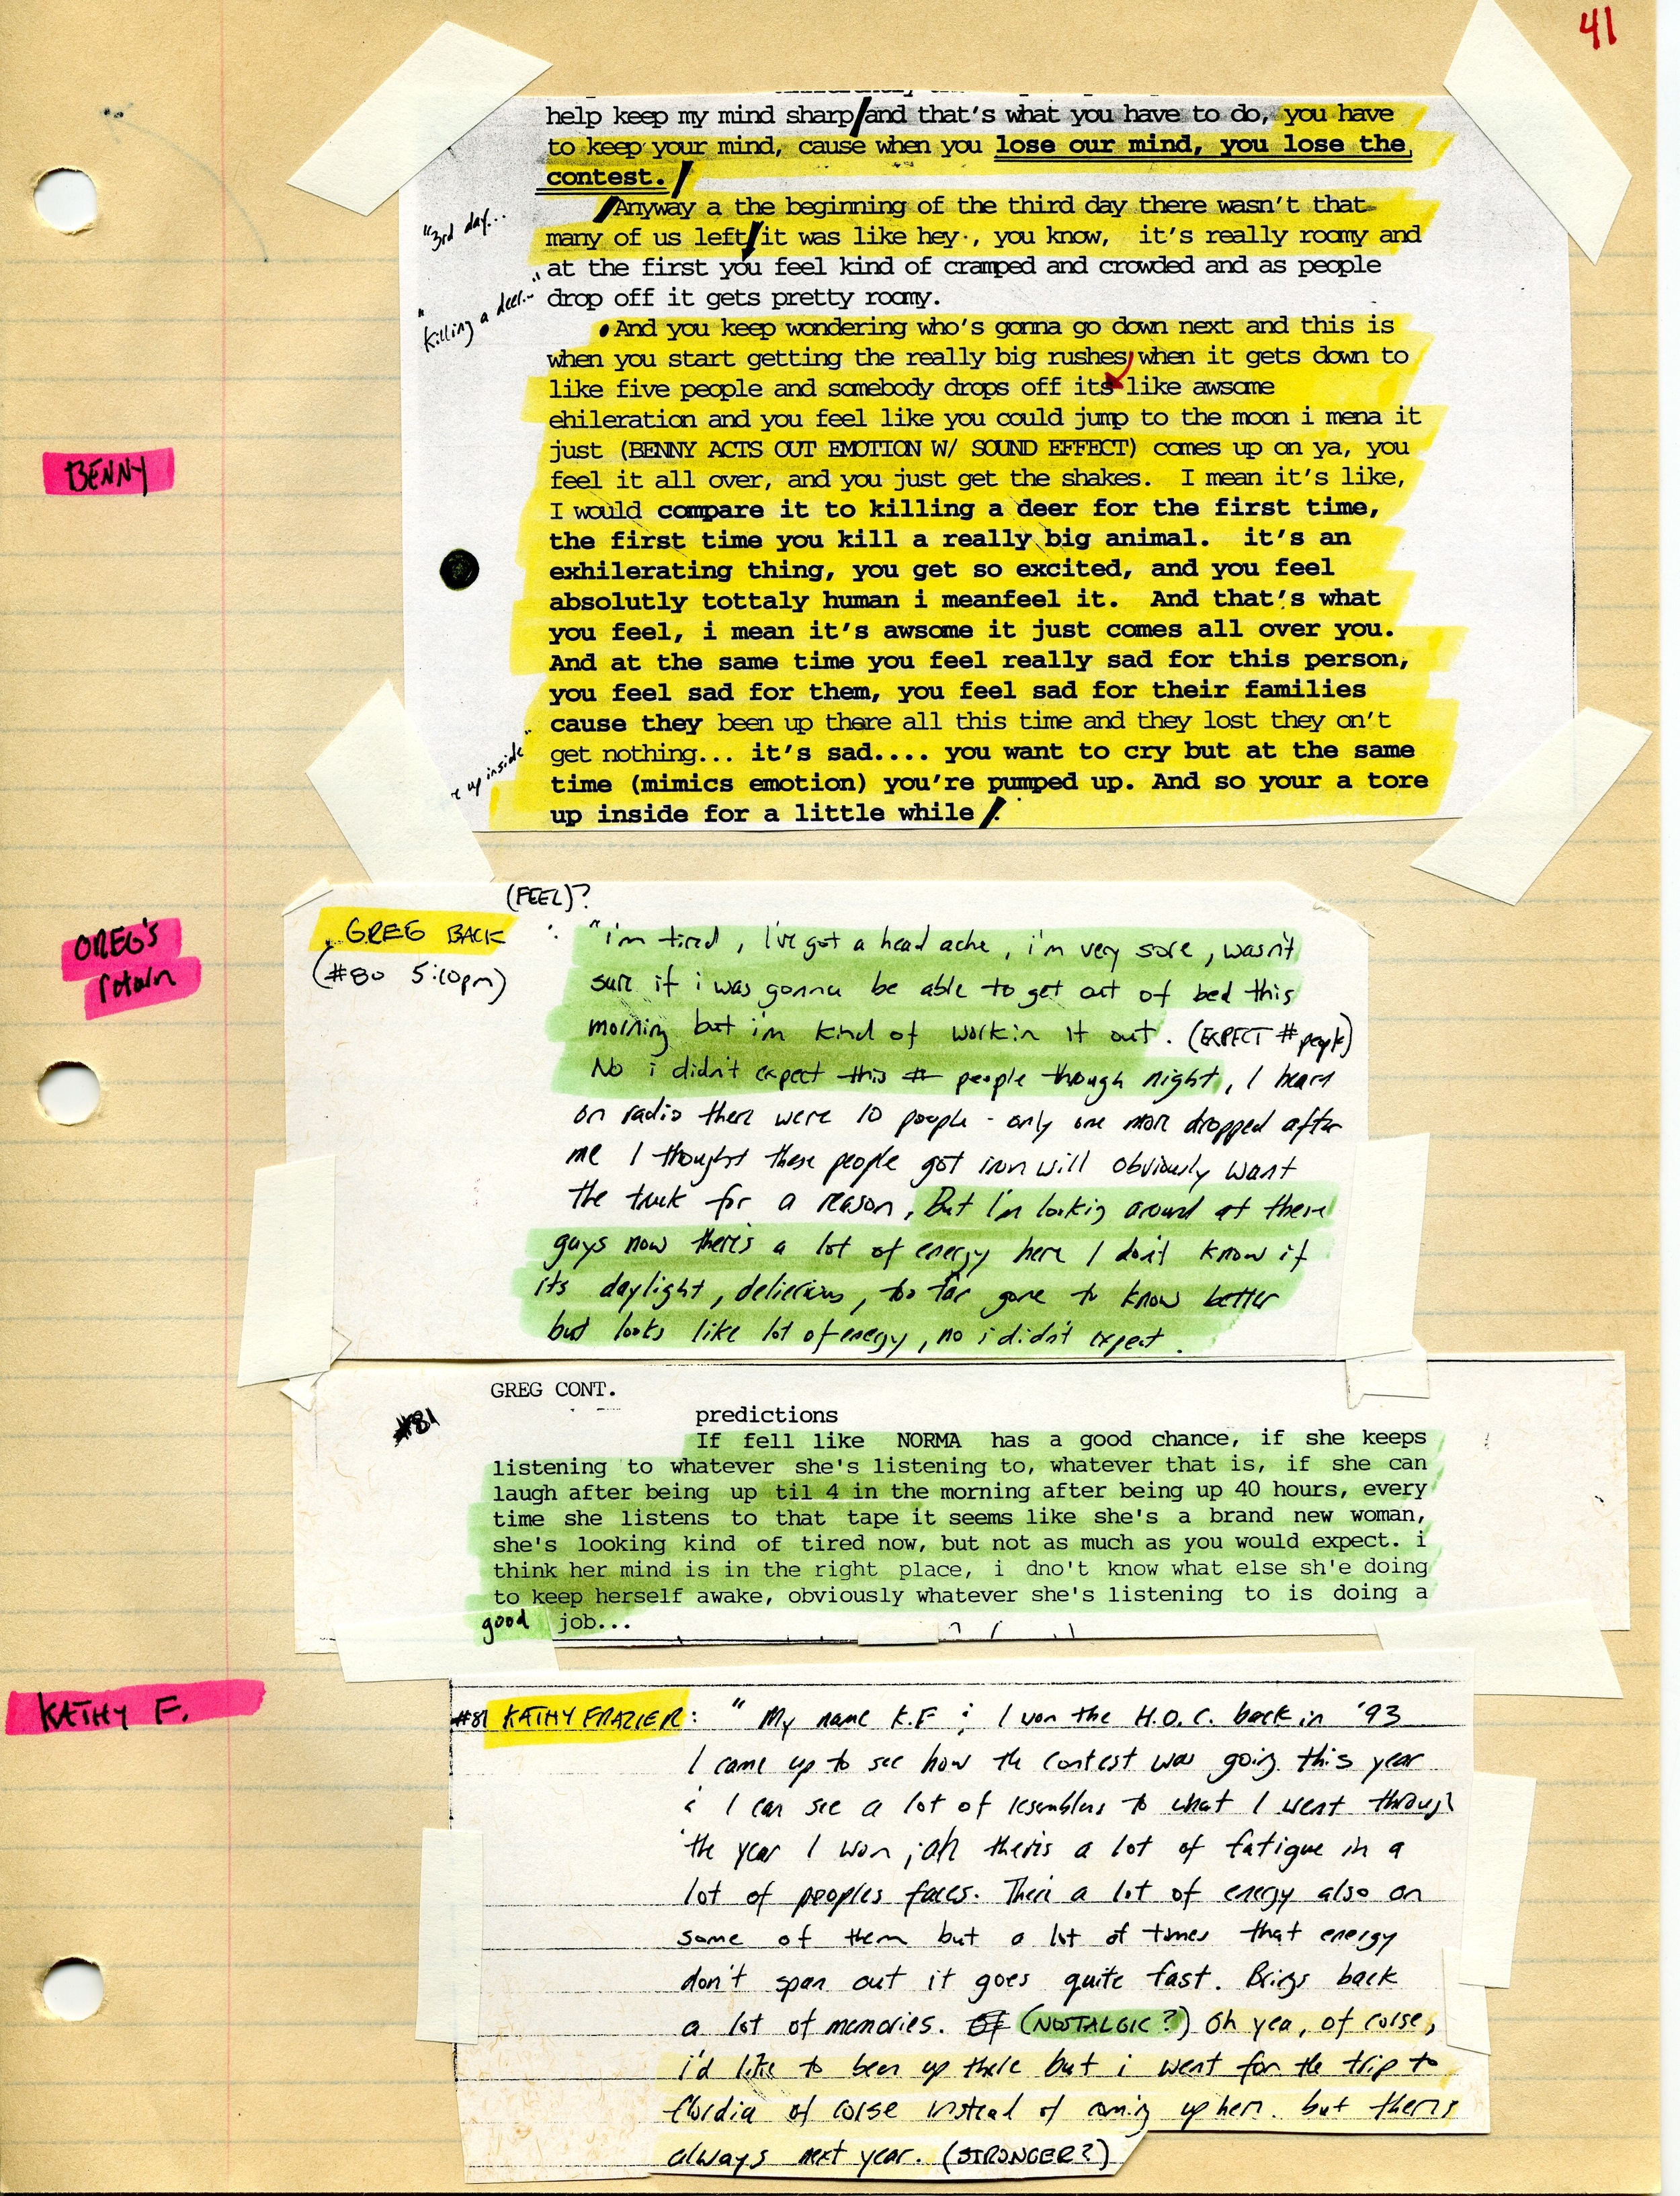 41
help keep my mind sharp/and that's what you have to do, you have
to keep your mind, cause when you lose our mind, you lose the
contest./
/Anyway a the beginning of the third day there wasn't that
many of us left/it was like hey., you know, it's really roomy and
at the first you feel kind of cramped and crowded and as people
drop off it gets pretty roomy.
And you keep wondering who's gonna go down next and this is
when you start getting the really big rushes, when it gets down to
like five people and somebody drops off its like awsome
ehileration and you feel like you could jump to the moon i mena it
just (BENNY ACTS OUT EMOTION W/ SOUND EFFECT) comes up on ya, you
feel it all over, and you just get the shakes. I mean it's like,
I would compare it to killing a deer for the first time,
the first time you kill a really big animal. it's an
exhilerating thing, you get so excited, and you feel
absolutly tottaly human i meanfeel it. And that's what
you feel, i mean it's awsome it just comes all over you.
And at the same time you feel really sad for this person,
you feel sad for them, you feel sad for their families
cause they been up there all this time and they lost they on't
get nothing... it's sad.... you want to cry but at the same
time (mimics emotion) you're pumped up. And so your a tore
up inside for a little while/.
"3rd day...
"killing a deer..."
up inside"
BENNY
GREG'S
return
(FEEL)?
GREG BACK :
(#80 5:10pm)
"i'm tired, I've got a head ache, i'm very sore, wasn't
sure if i was gonna be able to get out of bed this
morning but i'm kind of workin it out. (EXPECT # people)
No i didn't expect this # people though night, I heard
on radio there were 10 people - only one more dropped after
me I thought these people got iron will obviously want
the truck for a reason, But I'm looking around at these
guys now there's a lot of energy here I don't know if
its daylight, delierious, too far gone to know better
but looks like lot of energy, no i didn't expect.
GREG CONT.
#81
predictions
If fell like NORMA has a good chance, if she keeps
listening to whatever she's listening to, whatever that is, if she can
laugh after being up til 4 in the morning after being up 40 hours, every
time she listens to that tape it seems like she's a brand new woman,
she's looking kind of tired now, but not as much as you would expect. i
think her mind is in the right place, i dno't know what else sh'e doing
to keep herself awake, obviously whatever she's listening to is doing a
good job...
KATHY F.
#81 KATHY FRAZIER: "My name K.F & I won the H.O.C. back in '93
I came up to see how the contest was going this year
& I can see a lot of resemblens to what I went through
the year I won; ah theris a lot of fatigue in a
lot of peoples faces. There a lot of energy also on
some of them but a lot of times that energy
don't span out it goes quite fast. Brings back
a lot of memories. Of (NOSTALGIC?) Oh yea, of corse,
i'd like to been up there but i went for the trip to
flordia of corse instead of coming up here. but theris
always next year. (STRONGER?)